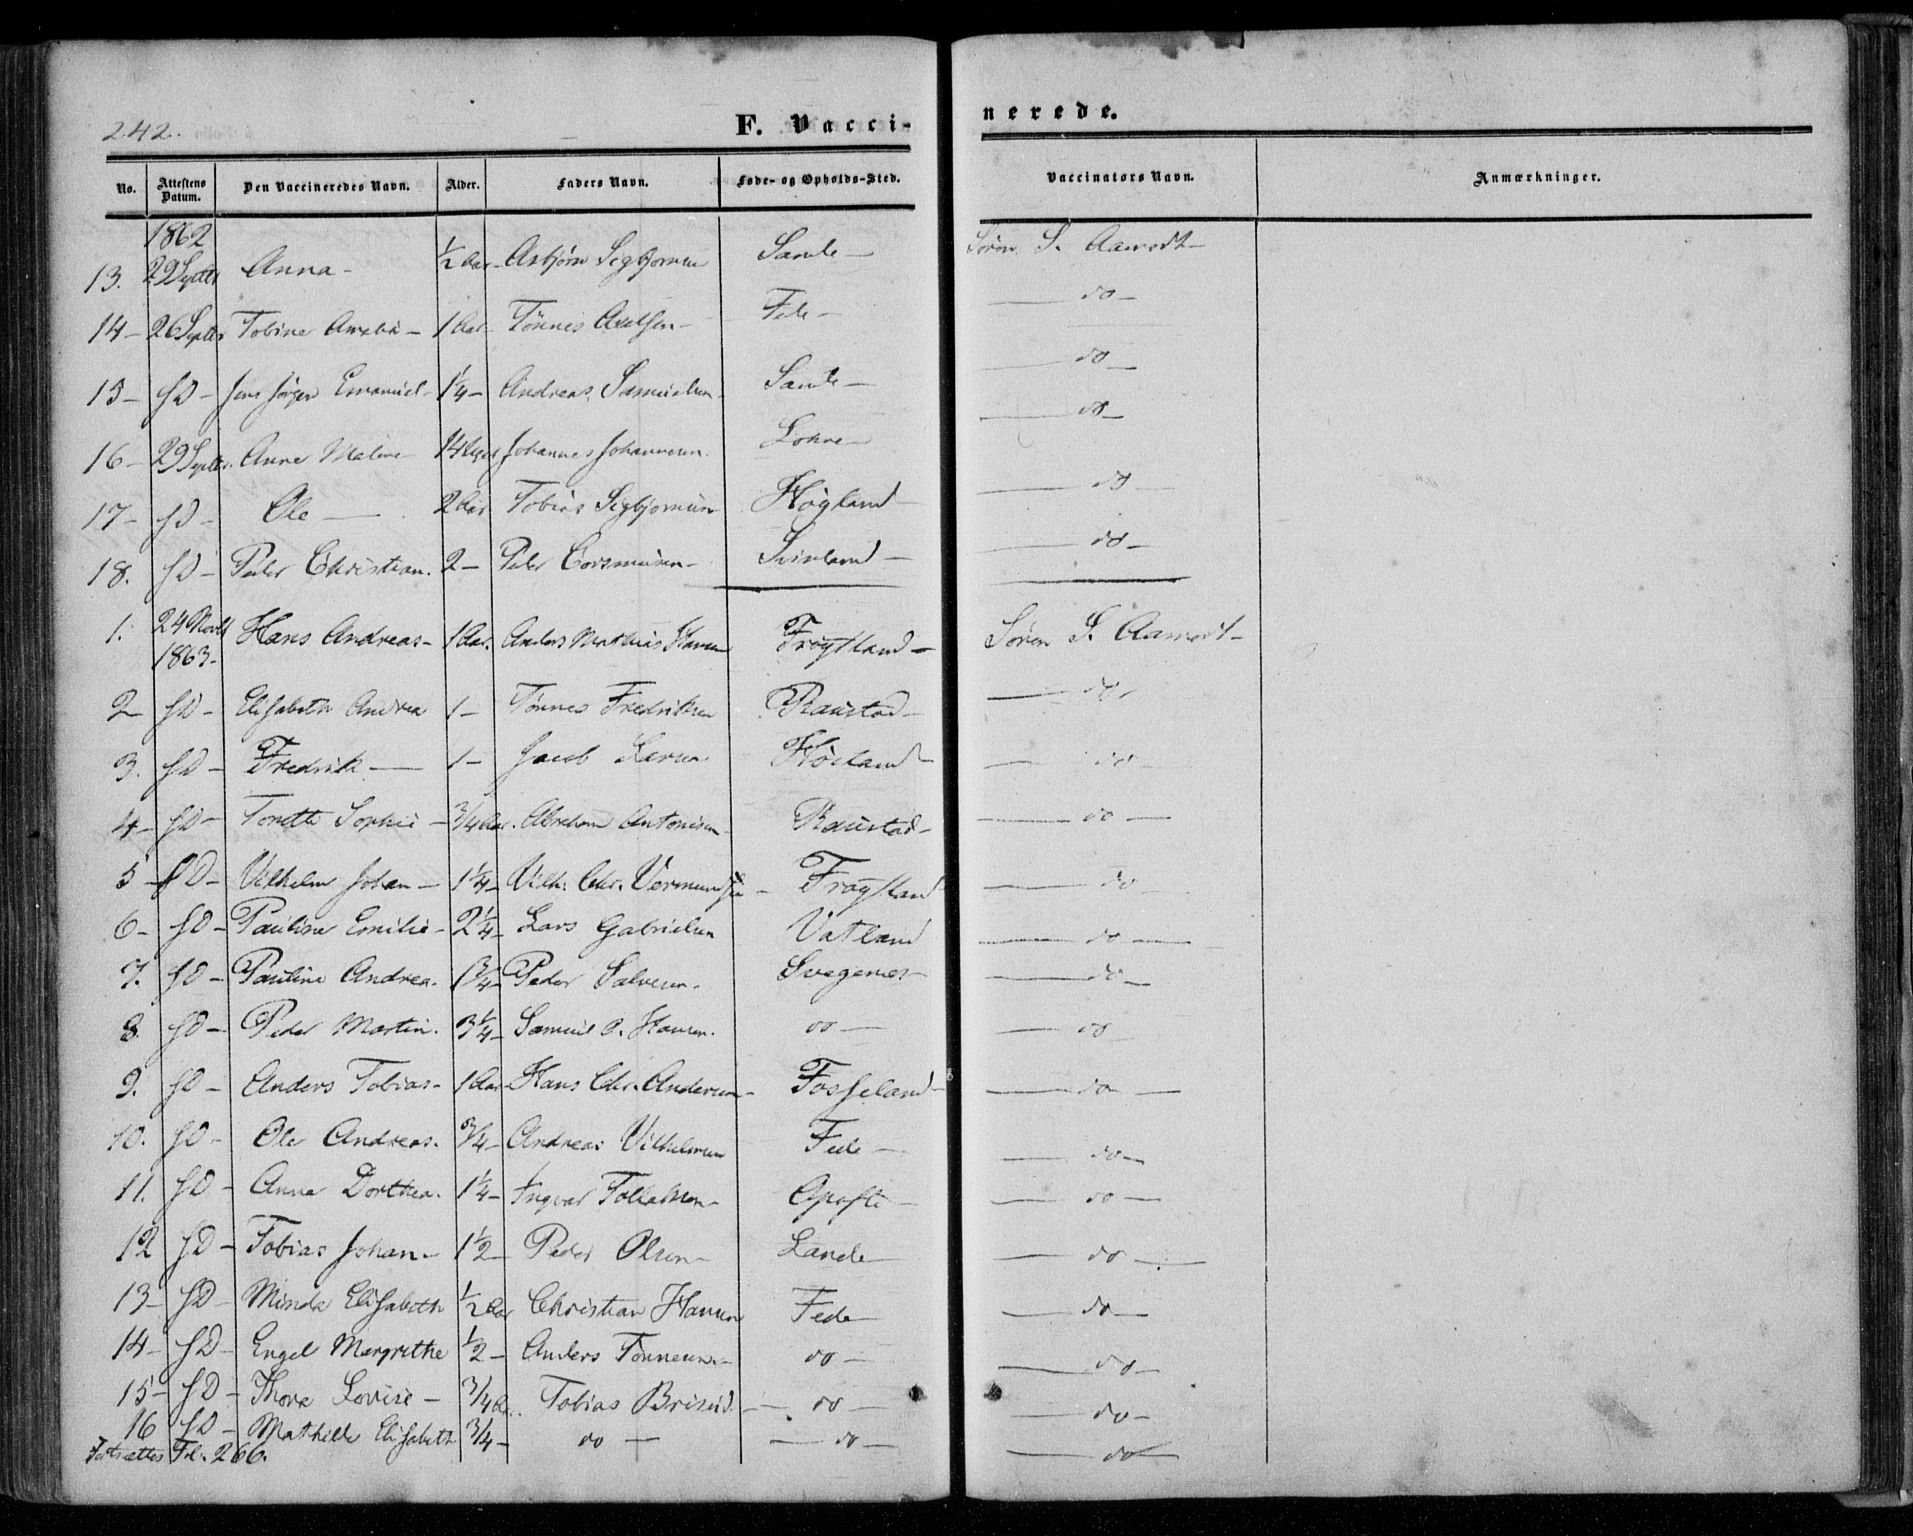 242.
F. Vacci-
nerede.
No. Attestens Datum. Den Vaccineredes Navn. Alder. Faders Navn. Føde- og Opholds-Sted. Vaccinators Navn. Anmærkninger.
1862
13. 29 Septbr Anna - ½ Aar - Asbjørn Sigbjørnsen Sande - Søren S. Aamodt -
14 - 26 Septbr Tobine Amalia - 1 Aar - Tønnes Axelsen - Fede - do -
15 - sD - Jens Jørgen Emanuel - 1¼ - Andreas Samuelsen - Sande - do -
16 - 29 Septbr. Anne Maline - 14 Johannes Johannesen. do -
17 - sD - Ole - 2 Aar Tobias Sigbjørnsen Høyland - do -
18. sD - Peder Christian. 2 - Peder - Svinland - do -
1. 24 Novbr 1863 - Hans Andreas - 1 Aar. Anders Mathias Hansen Frøysland - Søren S. Aamodt -
2 - sD - Elisabeth Andrea 1 - Tønnes Fredriksen Raustad - do -
3. sD - Fredrik - 1 - Jacob Larsen Høiland - do -
4 - sD - Tonette Sophie - ¾ Aar. Abraham Antonisen - Raustad - do -
5 - sD - Vilhelm Johan - 1¼ - Vilh. Chr. Vermundsen - Frøysland do -
6 - sD - Pauline Emilie - 2¼ - Lars Gabrielsen Vatland do -
7. sD - Pauline Andrea. 1¾ - Peder Salvesen. Svegenes - do -
8. sD - Peder Martin. 3¼ - Samuel O. Hansen. do - do -
9. sD - Anders Tobias - 1 Aar - Hans Chr. Andersen - Fosseland - do -
10. sD - Ole Andreas. ¾ - Andreas Vilhelmsen Fede - do -
11. sD - Anna Dorthea. 1¼ - Ingvar - Opofte - do -
12 sD - Tobias Johan - 1½ - Peder Olsen - Lande - do -
13 - sD - Minda Elisabeth ½ Aar Christian Hansen Fede - do -
14 - sD - Engel Margrethe ½ - Anders Tønnesen - do - do -
15 - sD - Thora Lovise - ¾ Aar. Tobias Briseid - do - do -
16 sD - Mathilde Elisabeth ¾ - do - do - do -
Fortsættes Fol. 266.